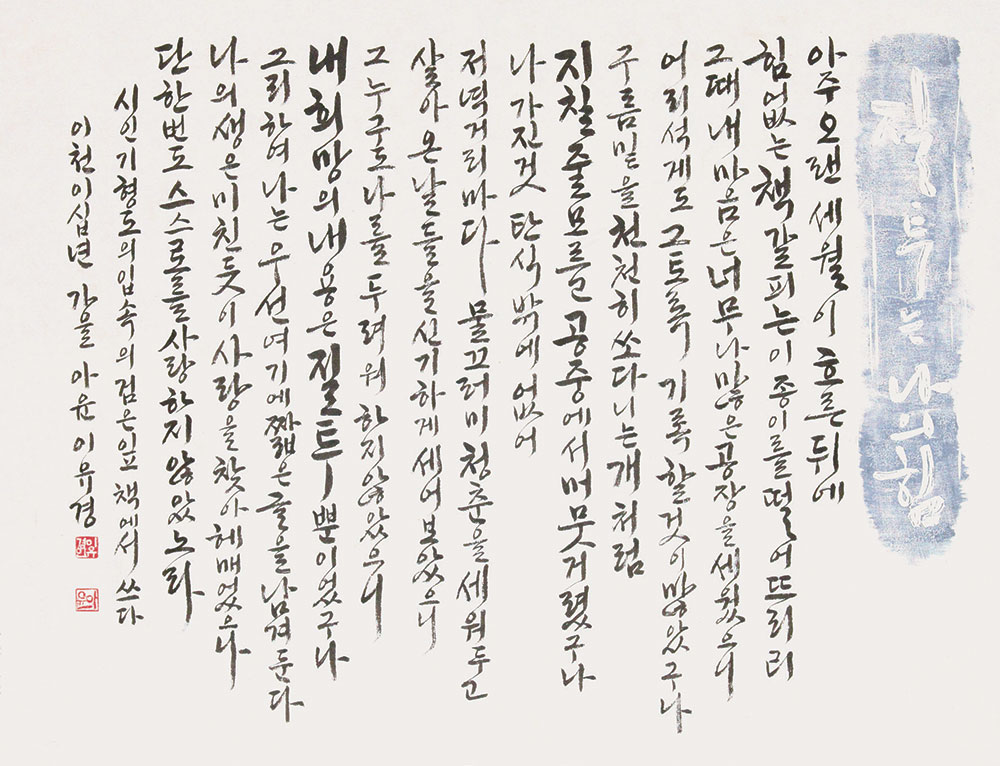 질투는 나의 힘
아주 오랜 세월이 흐른 뒤에
힘없는 책갈피는 이 종이를 떨어뜨리리
그때 내 마음은 너무나 많은 공장을 세웠으니
어리석게도 그토록 기록할 것이 많았구나
구름 밑을 천천히 쏘다니는 개처럼
지칠 줄 모르고 공중에서 머뭇거렸구나
나 가진 것 탄식밖에 없어
저녁 거리마다 물끄러미 청춘을 세워두고
살아온 날들을 신기하게 세어보았으니
그 누구도 나를 두려워하지 않았으니
내 희망의 내용은 질투뿐이었구나
그리하여 나는 우선 여기에 짧은 글을 남겨둔다
나의 생은 미친듯이 사랑을 찾아 헤매었으나
단 한번도 스스로를 사랑하지 않았노라
시인 기형도의 입 속의 검은 잎 책에서 쓰다
이천이십년 가을 아윤 이유경